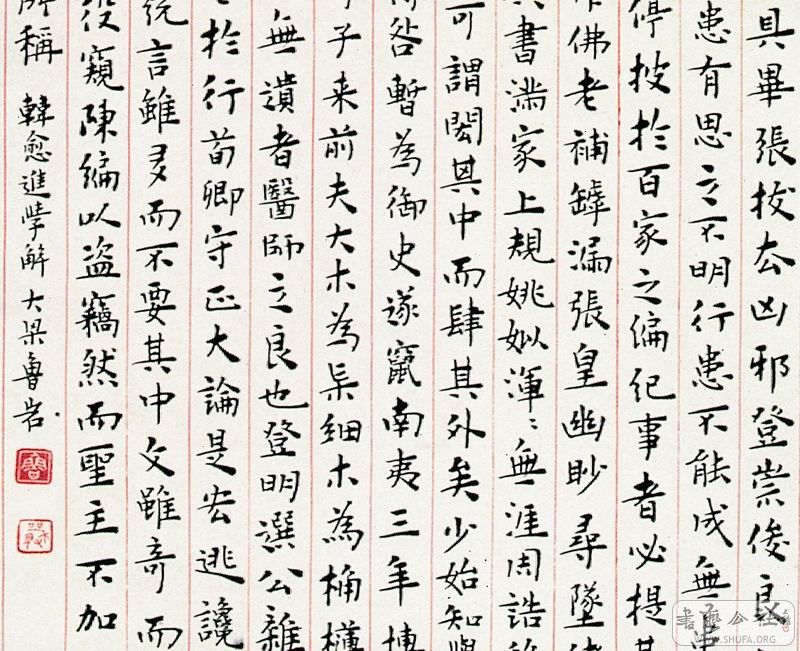 具畢張拔去凶邪登崇俊良
患有思之不明行患不能成無患
停披於百家之编紀事者必提其
佛老補罅漏張皇幽眇尋墜
書滿家上規姚姒渾〻無涯周誥
可謂閎其中而肆其外矣少始知學
咎暫為御史遂竄南夷三年博
子来前夫大木為杗細木為桷欂
無遺者醫師之良也登明選公雜
於行荀卿守正大論是宏逃讒
統言雖多而不要其中文雖奇而
役窺陳编以盜竊然而聖主不加
所稱 韓愈進學解 大梁魯岩
WWW.SHUFA.ORG